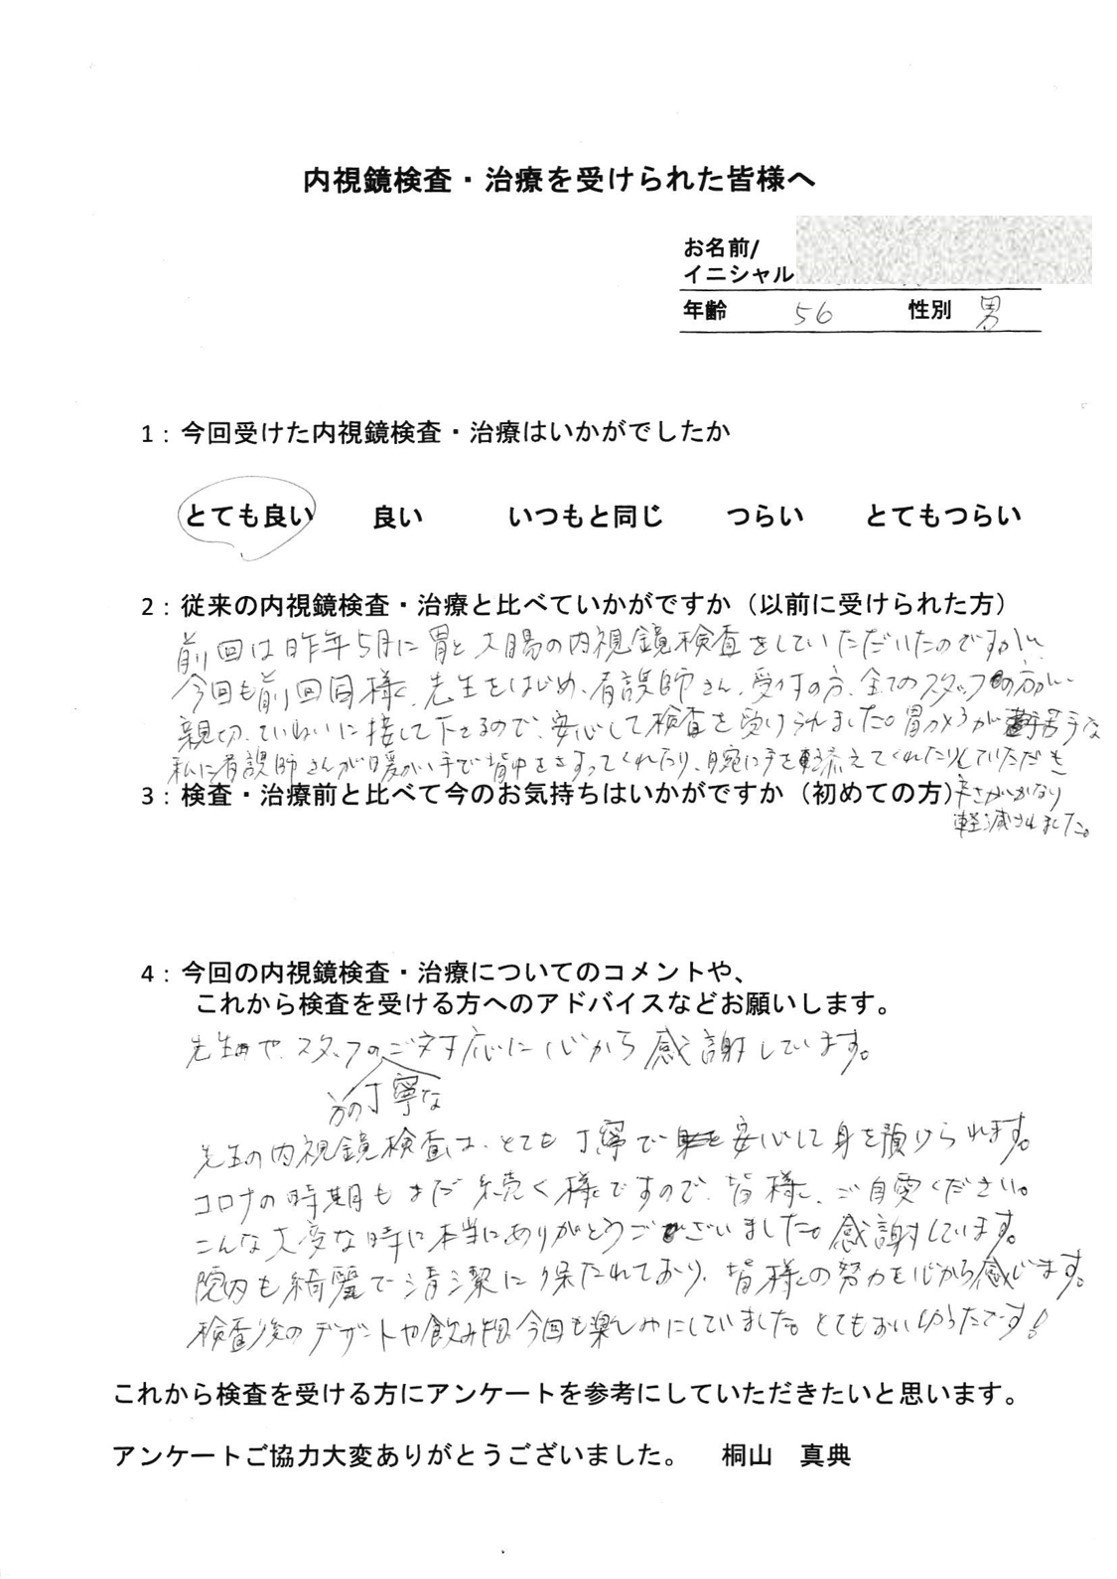 内視鏡検査・治療を受けられた皆様へ
お名前/
イニシャル
年齢 56 性別 男
1：今回受けた内視鏡検査・治療はいかがでしたか
とても良い 良い いつもと同じ つらい とてもつらい
2：従来の内視鏡検査・治療と比べていかがですか（以前に受けられた方）
前回は昨年5月に胃と大腸の内視鏡検査をしていただいたのですが、
今回も前回同様、先生をはじめ、看護師さん、受付の方、全てのスタッフの方が、
親切、ていねいに接して下さるので、安心して検査を受けられました。胃カメラが苦手な
私に看護師さんが暖かい手で背中をさすってくれたり、腕に手を添えてくれたりしていただき
3：検査・治療前と比べて今のお気持ちはいかがですか（初めての方）
辛さがかなり
軽減されました。
4：今回の内視鏡検査・治療についてのコメントや、
これから検査を受ける方へのアドバイスなどお願いします。
先生や、スタッフのご対応に心から感謝しています。
方の丁寧な
先生の内視鏡検査は、とても丁寧で安心して身を預けられます。
コロナの時期もまだ続く様ですので、皆様、ご自愛ください。
こんな大変な時に本当にありがとうございました。感謝しています。
院内も綺麗で清潔に保たれており、皆様の努力を心から感じます。
検査後のデザートや飲み物今回も楽しみにしていました。とてもおいしかったです！
これから検査を受ける方にアンケートを参考にしていただきたいと思います。
アンケートご協力大変ありがとうございました。 桐山 真典